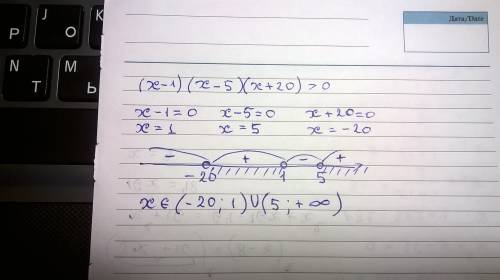 J
K
Р
О
N
M
Т
Ь
Дата/Date
(x-1)(x-5)(x+20)>0
x-1=0 x-5=0 x+20=0
x=1 x=5 x=-20
- + - +
-20 1 5
x∈(-20;1)∪(5;+∞)